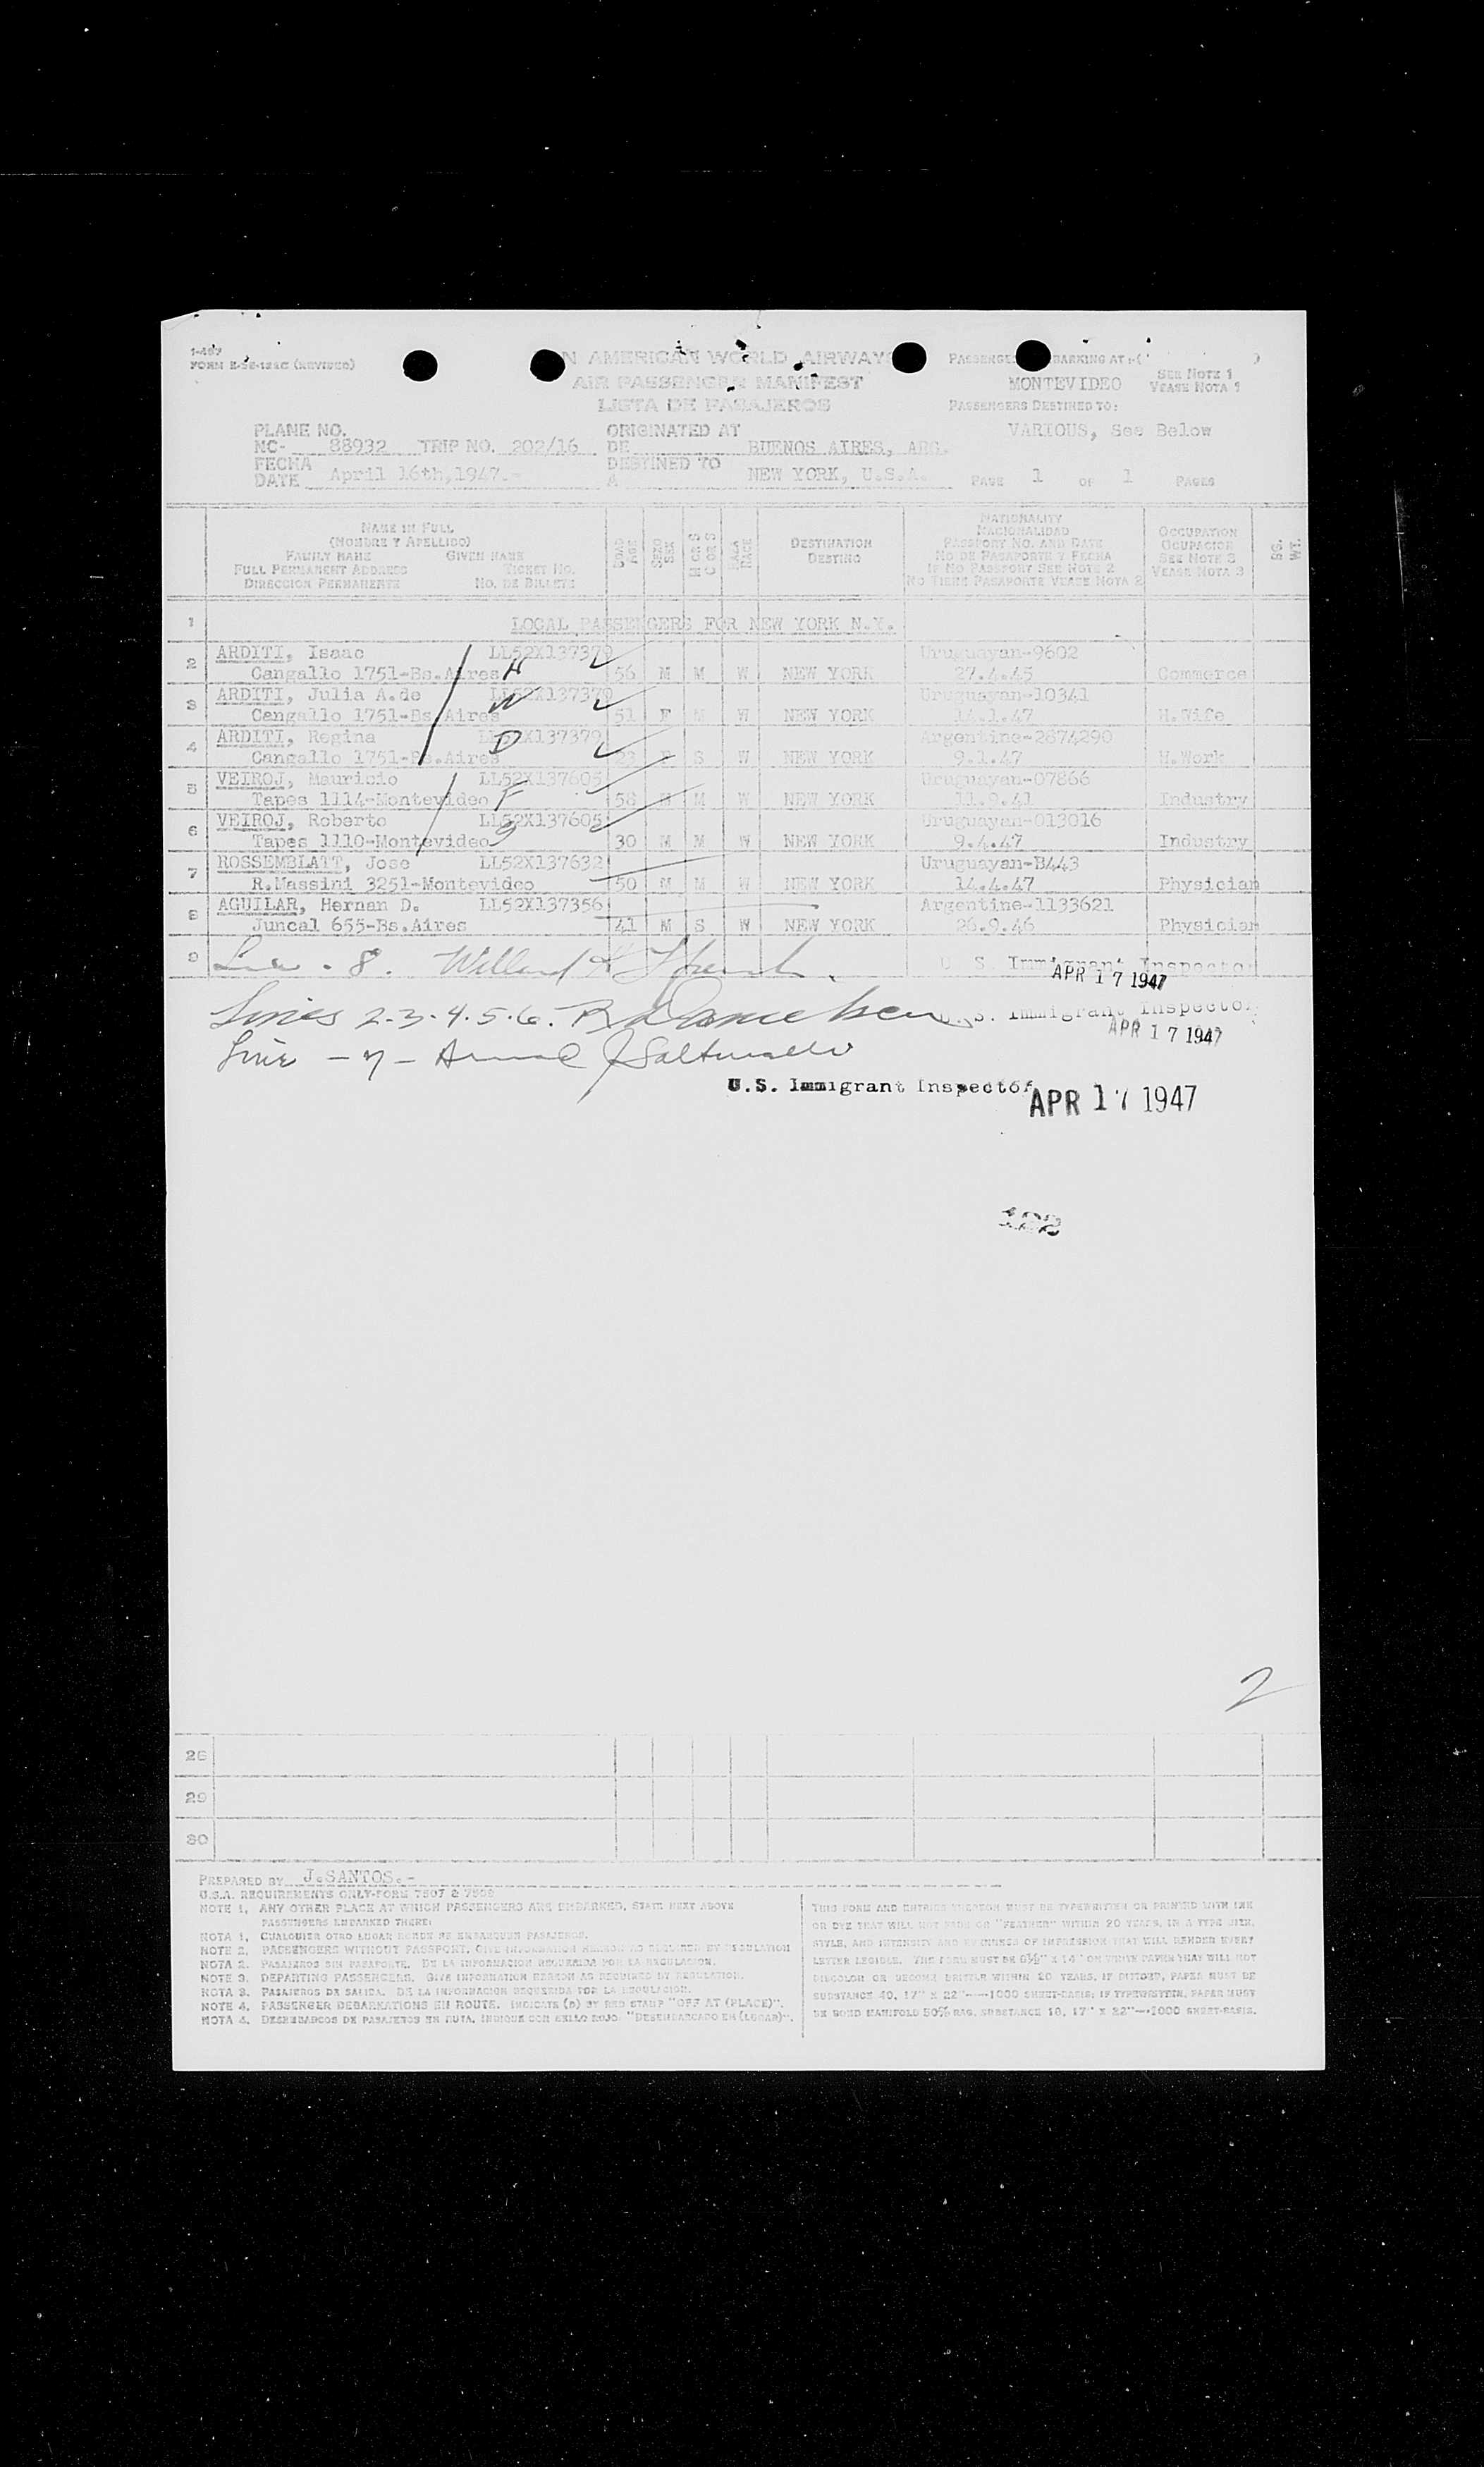 1-467
FORM E-SE-122C (REVISED)
N AMERICAN WORLD AIRWAY
AIR PASSENGER MANIFEST
LISTA DE PASAJEROS
PASSENGE BARKING AT :-( )
MONTEVIDEO
SEE NOTE 1
VEASE NOTA 1
PASSENGERS DESTINED TO:
VARIOUS, See Below
PLANE NO.
NC- 88932 TRIP NO. 202/16
FECHA
DATE April 16th, 1947.-
ORIGINATED AT
DE BUENOS AIRES, ARG.
DESTINED TO
A NEW YORK, U.S.A.
PAGE 1 OF 1 PAGES
NAME IN FULL
(NOMBRE Y APELLIDO)
FAMILY NAME GIVEN NAME
FULL PERMANENT ADDRESS TICKET NO.
DIRECCION PERMANENTE NO. DE BILLETE
EDAD AGE
SEXO SEX
M OR S
C OR S
RAZA RACE
DESTINATION
DESTINO
NATIONALITY
NACIONALIDAD
PASSPORT NO. AND DATE
NO DE PASAPORTE Y FECHA
IF NO PASSPORT SEE NOTE 2
NO TIENE PASAPORTE VEASE NOTA 2
OCCUPATION
OCUPACION
SEE NOTE 3
VEASE NOTA 3
BG. WT.
1 LOCAL PASSENGERS FOR NEW YORK N.Y.
2 ARDITI, Isaac LL52X137379 Uruguayan-9602
Cangallo 1751-Bs.Aires H 56 M M W NEW YORK 27.4.45 Commerce
3 ARDITI, Julia A.de LL52X137379 Uruguayan-10341
Cangallo 1751-Bs.Aires W 51 F M W NEW YORK 14.1.47 H.Wife
4 ARDITI, Regina LL52X137379 Argentine-2874290
Cangallo 1751-Bs.Aires D 23 F S W NEW YORK 9.1.47 H.Work
5 VEIROJ, Mauricio LL52X137605 Uruguayan-07866
Tapes 1114-Montevideo F 58 M M W NEW YORK 11.9.41 Industry
6 VEIROJ, Roberto LL52X137605 Uruguayan-013016
Tapes 1110-Montevideo S 30 M M W NEW YORK 9.4.47 Industry
7 ROSSEMBLATT, Jose LL52X137632 Uruguayan-B443
R.Massini 3251-Montevideo 50 M M W NEW YORK 14.4.47 Physician
8 AGUILAR, Hernan D. LL52X137356 Argentine-1133621
Juncal 655-Bs.Aires 41 M S W NEW YORK 26.9.46 Physician
9 Line - 8. Willard U. S. Immigrant Inspector
APR 17 1947
Lines 2-3-4-5-6. U.S. Immigrant Inspector
APR 17 1947
Line - 7 -
U.S. Immigrant Inspector APR 17 1947
122
2
28
29
30
PREPARED BY J.SANTOS.-
U.S.A. REQUIREMENTS ONLY-FORM 7507 & 7509
NOTE 1. ANY OTHER PLACE AT WHICH PASSENGERS ARE EMBARKED, STATE NEXT ABOVE
PASSENGERS EMBARKED THERE:
NOTA 1. CUALQUIER OTRO LUGAR DONDE SE EMBARQUEN PASAJEROS.
NOTE 2. PASSENGERS WITHOUT PASSPORT. GIVE INFORMATION HEREON AS REQUIRED BY REGULATION
NOTA 2. PASAJEROS SIN PASAPORTE. DE LA INFORMACION REQUERIDA POR LA REGULACION.
NOTE 3. DEPARTING PASSENGERS. GIVE INFORMATION HEREON AS REQUIRED BY REGULATION.
NOTA 3. PASAJEROS DE SALIDA. DE LA INFORMACION REQUERIDA POR LA REGULACION.
NOTE 4. PASSENGER DEBARKATIONS EN ROUTE. INDICATE (D) BY RED STAMP "OFF AT (PLACE)".
NOTA 4. DESEMBARCOS DE PASAJEROS EN RUTA. INDIQUE CON SELLO ROJO: "DESEMBARCADO EN (LUGAR)".
THIS FORM AND ENTRIES THEREON MUST BE TYPEWRITTEN OR PRINTED WITH INK
OR DYE THAT WILL NOT FADE OR "FEATHER" WITHIN 20 YEARS, IN A TYPE SIZE,
STYLE, AND INTENSITY AND EVENNESS OF IMPRESSION THAT WILL RENDER EVERY
LETTER LEGIBLE. THE FORM MUST BE 8½" X 14" ON WHITE PAPER THAT WILL NOT
DISCOLOR OR BECOME BRITTLE WITHIN 20 YEARS. IF DITTOED, PAPER MUST BE
SUBSTANCE 40, 17" X 22"—1000 SHEET-BASIS; IF TYPEWRITTEN, PAPER MUST
BE BOND MANIFOLD 50% RAG, SUBSTANCE 18, 17" X 22"—1000 SHEET-BASIS.